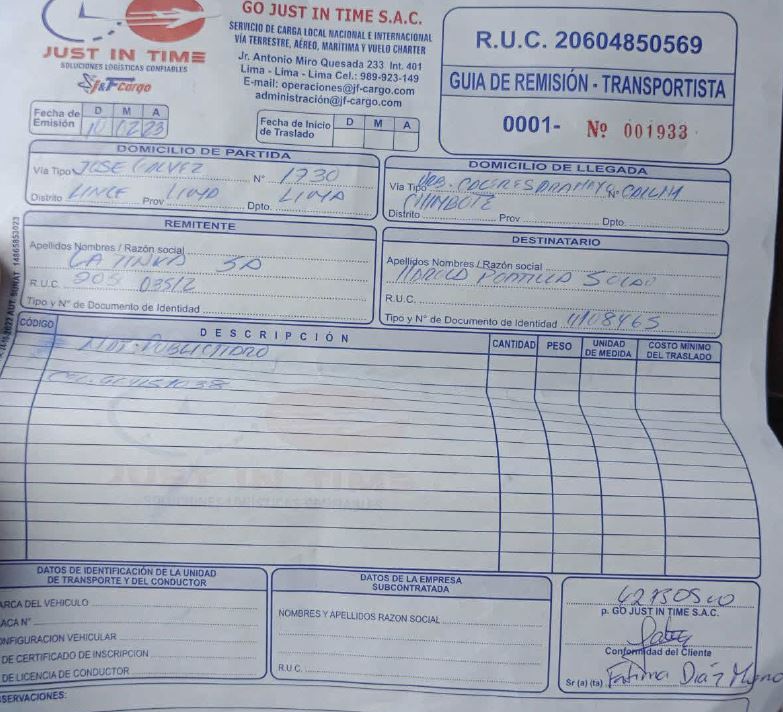 JUST IN TIME
SOLUCIONES LOGÍSTICAS CONFIABLES
J&F Cargo
GO JUST IN TIME S.A.C.
SERVICIO DE CARGA LOCAL NACIONAL E INTERNACIONAL
VÍA TERRESTRE, AÉREO, MARÍTIMA Y VUELO CHARTER
Jr. Antonio Miro Quesada 233 Int. 401
Lima - Lima - Lima Cel.: 989-923-149
E-mail: operaciones@jf-cargo.com
administración@jf-cargo.com
R.U.C. 20604850569
GUIA DE REMISIÓN - TRANSPORTISTA
0001- Nº 001933
Fecha de Emisión D M A
10 02 23
Fecha de Inicio de Traslado D M A
DOMICILIO DE PARTIDA
Vía Tipo JOSE GALVEZ N° 1730
Distrito LINCE Prov LIMA Dpto. LIMA
DOMICILIO DE LLEGADA
Vía Tipo N°
CHIMBOTE
Distrito Prov Dpto.
REMITENTE
Apellidos Nombres / Razón social
LA TINKA SA
R.U.C. 205 03512
Tipo y N° de Documento de Identidad
DESTINATARIO
Apellidos Nombres / Razón social
PORTILLA
R.U.C.
Tipo y N° de Documento de Identidad
CÓDIGO DESCRIPCIÓN CANTIDAD PESO UNIDAD DE MEDIDA COSTO MÍNIMO DEL TRASLADO
MAT. PUBLICITARIO
DATOS DE IDENTIFICACIÓN DE LA UNIDAD
DE TRANSPORTE Y DEL CONDUCTOR
ARCA DEL VEHICULO
ACA N°
ONFIGURACION VEHICULAR
DE CERTIFICADO DE INSCRIPCION
DE LICENCIA DE CONDUCTOR
DATOS DE LA EMPRESA
SUBCONTRATADA
NOMBRES Y APELLIDOS RAZON SOCIAL
R.U.C.
p. GO JUST IN TIME S.A.C.
Conformidad del Cliente
Sr (a) (ta) Fatima Diaz
SERVACIONES: